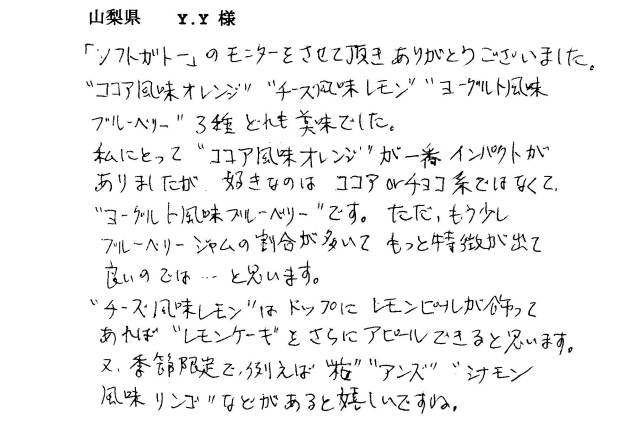 山梨県 Y.Y 様
「ソフトガトー」のモニターをさせて頂きありがとうございました。
"ココア風味オレンジ" "チーズ風味レモン" "ヨーグルト風味
ブルーベリー" 3種どれも美味でした。
私にとって "ココア風味オレンジ" が一番インパクトが
ありましたが、好きなのは ココアorチョコ系ではなくて、
"ヨーグルト風味ブルーベリー"です。ただ、もう少し
ブルーベリージャムの割合が多いて もっと特徴が出て
良いのでは…と思います。
"チーズ風味レモン"は トップに レモンピールが飾って
あれば "レモンケーキ" をさらにアピールできると思います。
又、季節限定で、例えば "桜" "アンズ" "シナモン
風味 リンゴ"などがあると嬉しいですね。